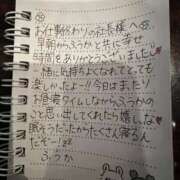 お仕事終わりの社長様へ
早朝からふうかと共に幸せ
時間をありがとございました
一緒に気持ちよくなれてとても
楽しかったよー!!今日はまったり
お昼寝タイムしながらふうかの
こと思い出してくれたら嬉しいな
眠そうだったからたくさん寝るん
だぞー!!
ふうか